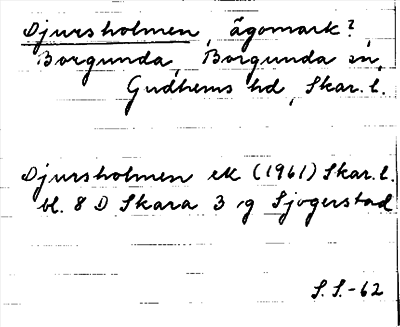 Djursholmen, ägomark?,
Borgunda, Borgunda sn,
Gudhems hd, Skar. l.
Djursholmen ek (1961) Skar. l.
bl. 8 D Skara 3 g Sjogerstad
S.S.-62